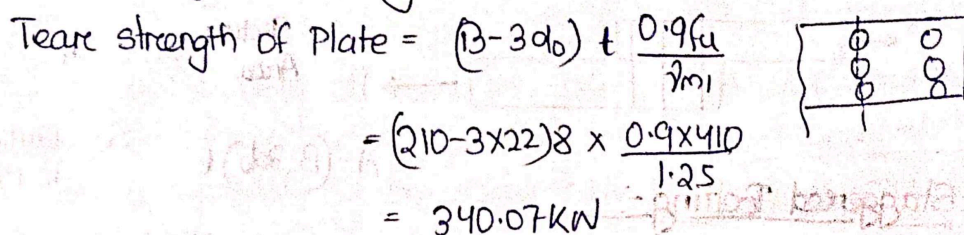 Teare strength of Plate = (B-3d0) t 0.9fu / γm1
= (210-3×22)8 × 0.9×410 / 1.25
= 340.07KN